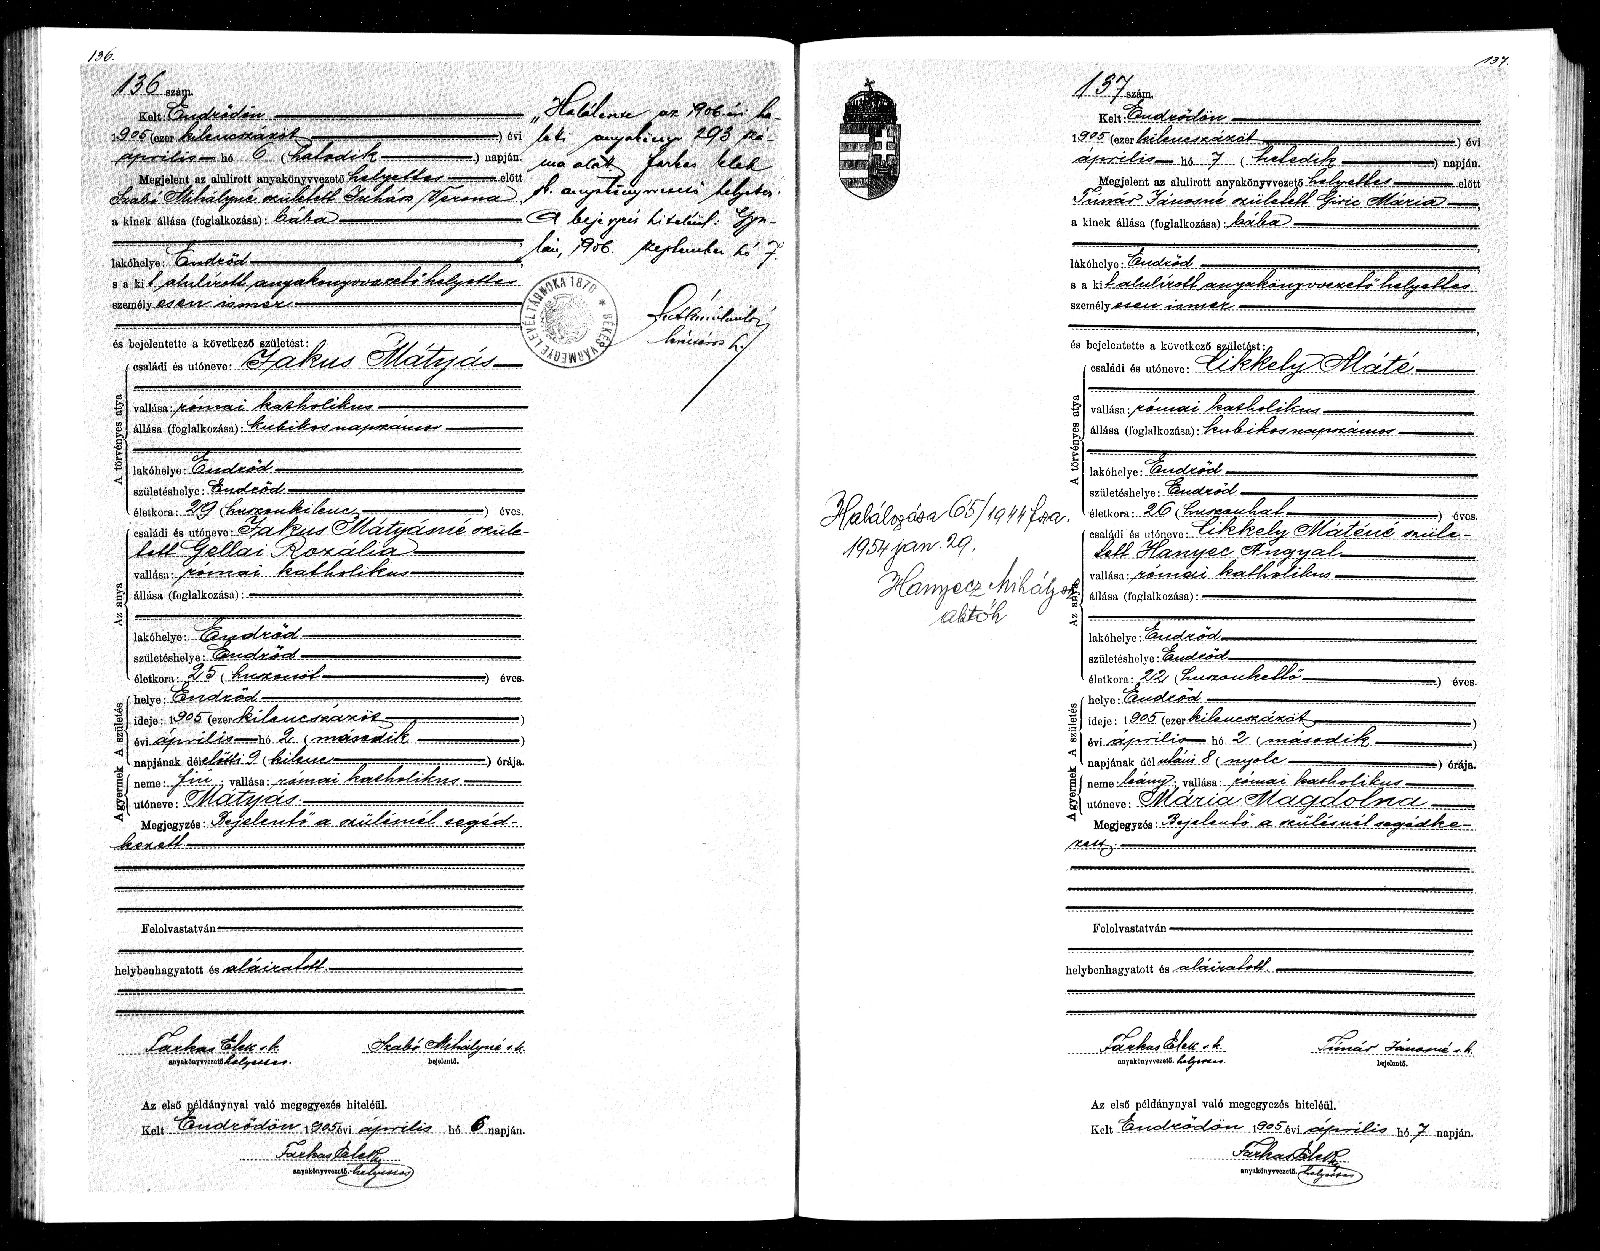 136.
136 szám.
Kelt: Endrődön
1905 (ezer kilencszázöt) évi
április hó 6 (hatodik) napján.
Megjelent az alulirott anyakönyvvezető helyettes előtt
Szabó Mihályné született Juhász Verona
a kinek állása (foglalkozása): bába
lakóhelye: Endrőd
s a kit alulírott anyakönyvvezető helyettes
személyesen ismer
és bejelentette a következő születést:
A törvényes atya
családi és utóneve: Jakus Mátyás
vallása: római katholikus
állása (foglalkozása): kubikosnapszámos
lakóhelye: Endrőd
születéshelye: Endrőd
életkora: 29 (huszonkilenc) éves.
Az anya
családi és utóneve: Jakus Mátyásné szüle-
tett Gellai Rozália
vallása: római katholikus
állása (foglalkozása):
lakóhelye: Endrőd
születéshelye: Endrőd
életkora: 25 (huszonöt) éves.
A gyermek A születés
helye: Endrőd
ideje: 1905 (ezer kilencszázöt)
évi április hó 2 (második)
napjának délelőtti 9 (kilenc) órája.
neme: fiu; vallása: római katholikus
utóneve: Mátyás
Megjegyzés: Bejelentő a szülésnél segéd-
kezett
Felolvastatván
helybenhagyatott és aláiratott.
Farkas Elek s.k.
anyakönyvvezető helyettes.
Szabó Mihályné s.k.
bejelentő.
Az első példánynyal való megegyezés hiteléül.
Kelt Endrődön 1905 évi április hó 6 napján.
Farkas Elek
anyakönyvvezető helyettes
"Halálozása az 1906 évi ha-
lotti anyakönyv 293 szá-
ma alatt Farkas Elek
h. anyakönyvvezető helyettes.
A bejegyzés hiteléül: Gyu-
lán, 1906. szeptember hó 7.
BÉKÉSVÁRMEGYE LEVÉLTÁRNOKA 1870
137.
137 szám.
Kelt: Endrődön
1905 (ezer kilencszázöt) évi
április hó 7 (hetedik) napján.
Megjelent az alulirott anyakönyvvezető helyettes előtt
Timár Jánosné született Giric Mária
a kinek állása (foglalkozása): bába
lakóhelye: Endrőd
s a kit alulírott anyakönyvvezető helyettes
személyesen ismer
és bejelentette a következő születést:
A törvényes atya
családi és utóneve: Cikkely Máté
vallása: római katholikus
állása (foglalkozása): kubikosnapszámos
lakóhelye: Endrőd
születéshelye: Endrőd
életkora: 26 (huszonhat) éves.
Az anya
családi és utóneve: Cikkely Máténé szüle-
tett Hanyec Angyal
vallása: római katholikus
állása (foglalkozása):
lakóhelye: Endrőd
születéshelye: Endrőd
életkora: 22 (huszonkettő) éves.
A gyermek A születés
helye: Endrőd
ideje: 1905 (ezer kilencszázöt)
évi április hó 2 (második)
napjának délutáni 8 (nyolc) órája.
neme: leány; vallása: római katholikus
utóneve: Mária Magdolna
Megjegyzés: Bejelentő a szülésnél segédke-
zett.
Felolvastatván
helybenhagyatott és aláiratott.
Farkas Elek s.k.
anyakönyvvezető helyettes.
Timár Jánosné s.k.
bejelentő.
Az első példánynyal való megegyezés hiteléül.
Kelt Endrődön 1905 évi április hó 7 napján.
Farkas Elek
anyakönyvvezető helyettes
Halálozása 65/1944 fsza.
1954 jan. 29.
Hanyecz Mihály